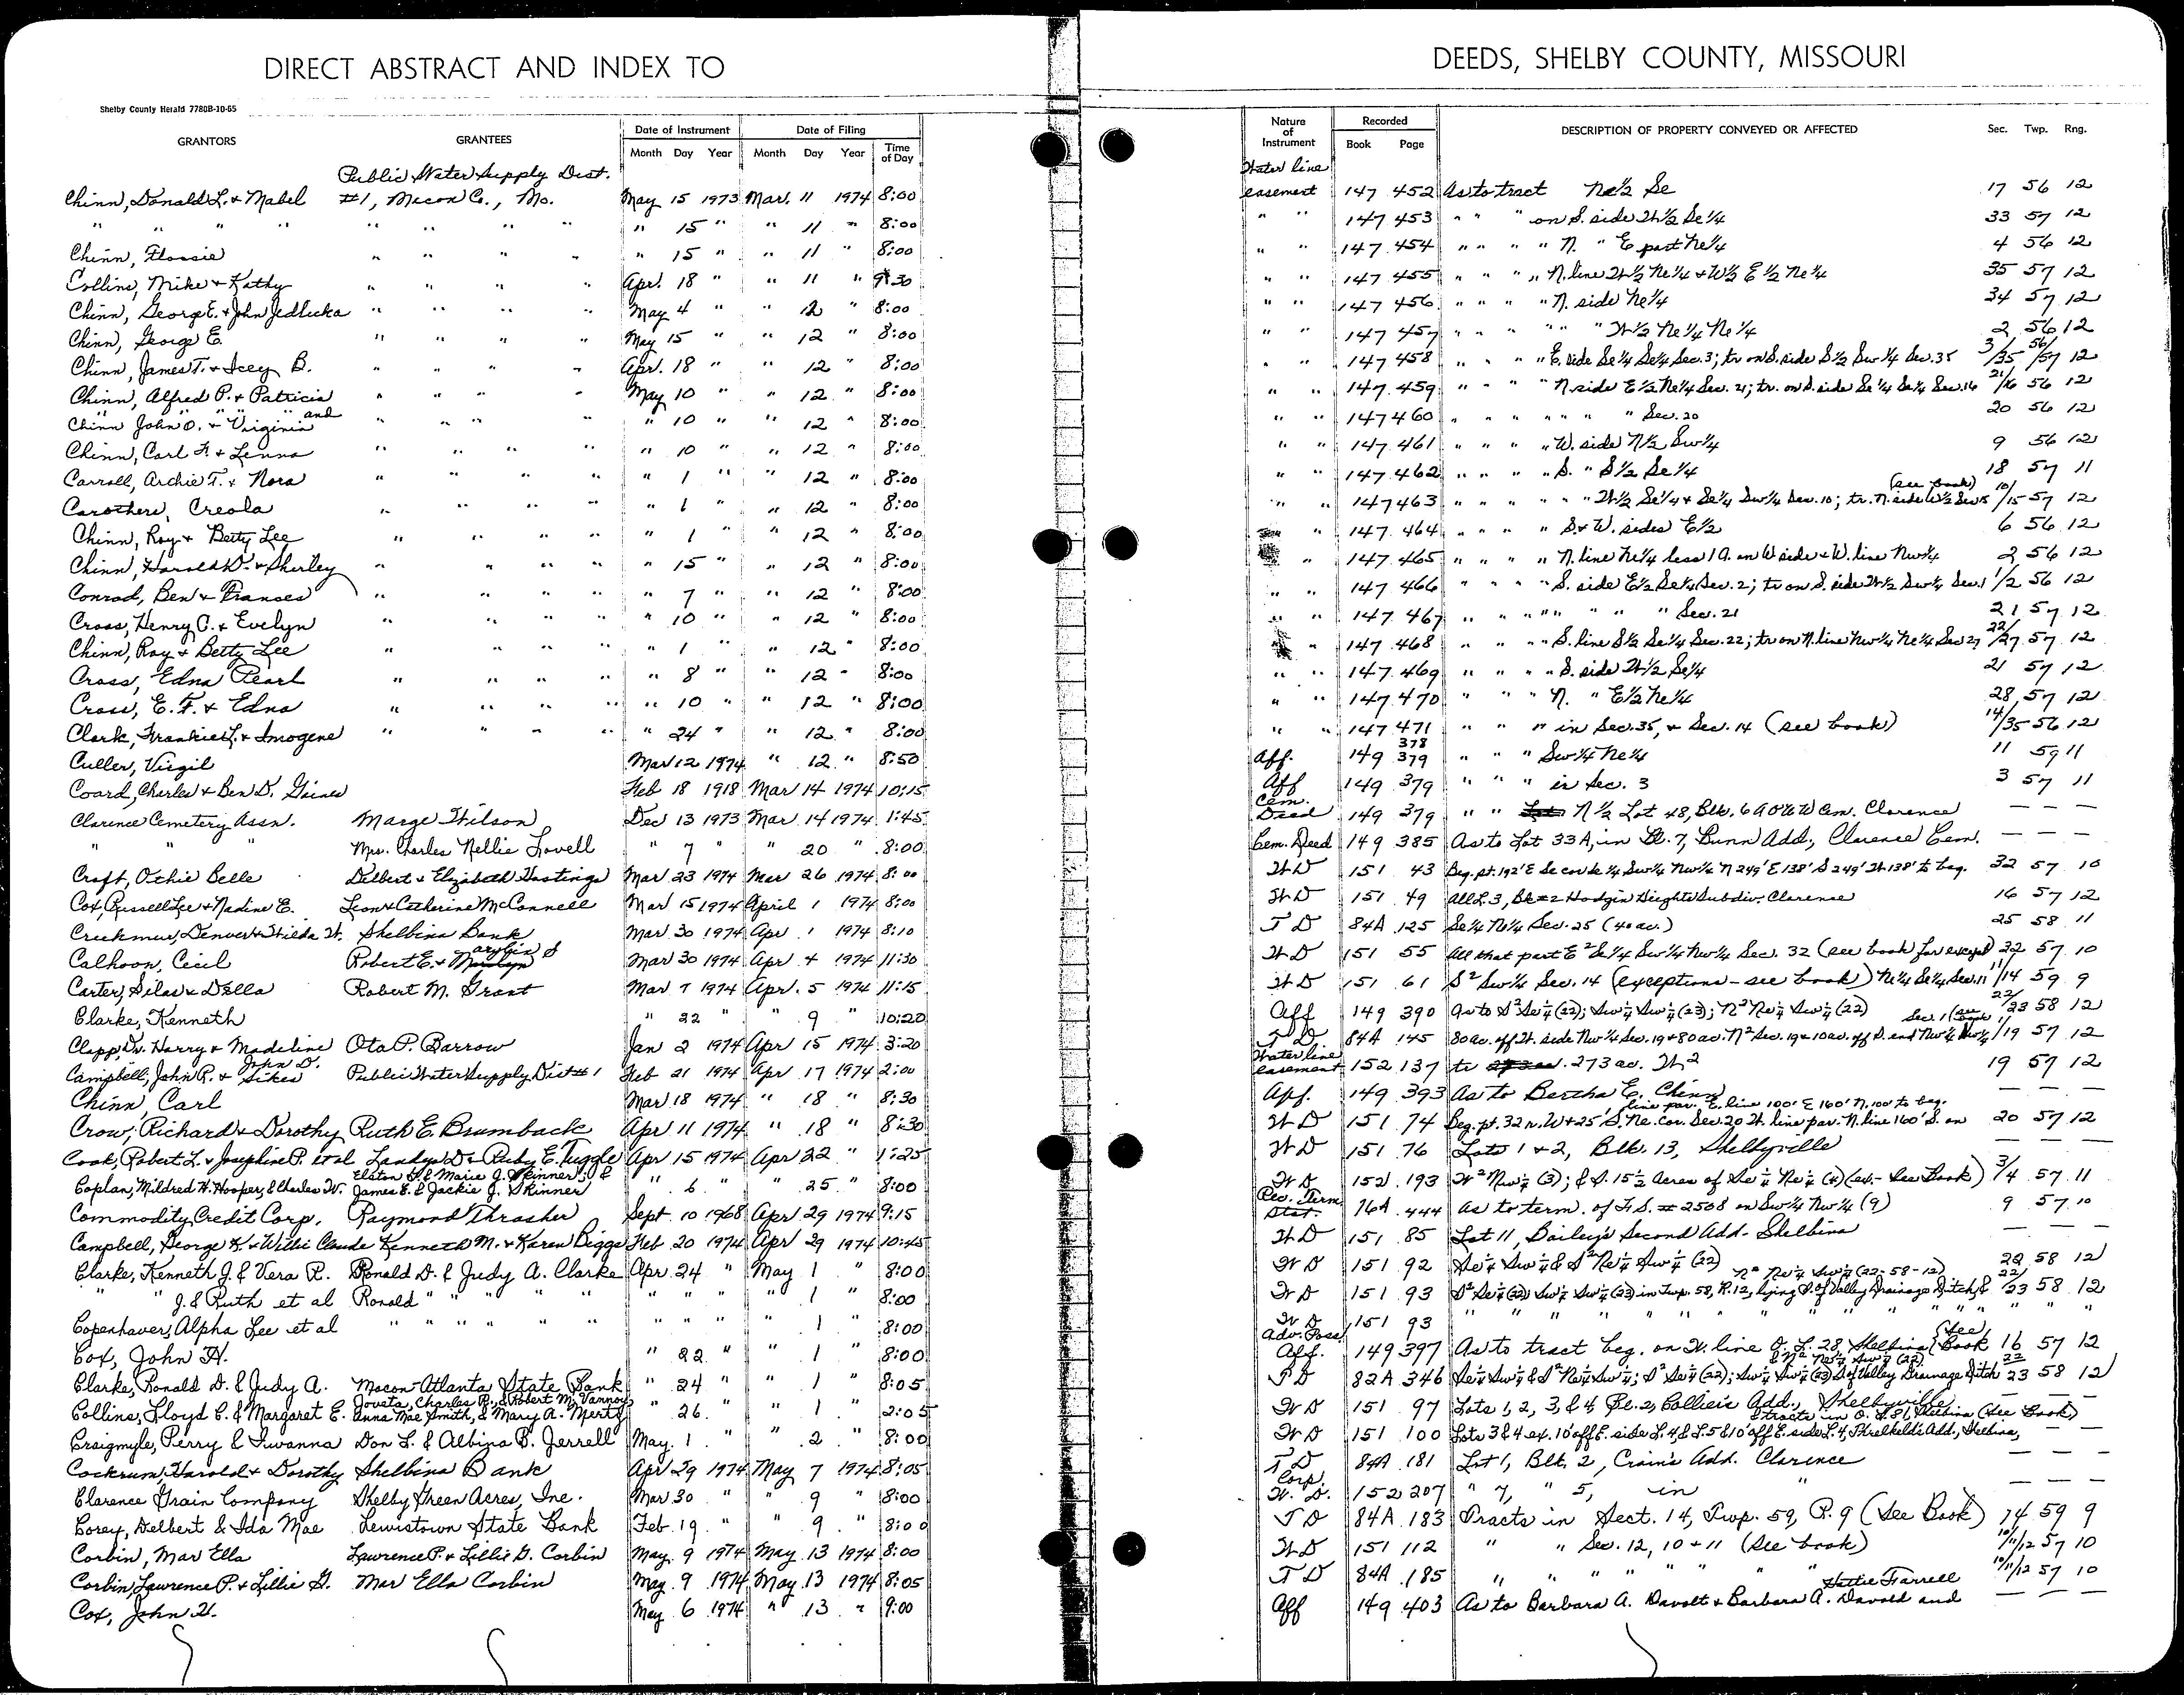 DIRECT ABSTRACT AND INDEX TO
Shelby County Herald 7780B-10-65
GRANTORS GRANTEES Date of Instrument Date of Filing
Month Day Year Month Day Year Time of Day
Public Water Supply Dist.
Chinn, Donald L. & Mabel #1, Macon Co., Mo. May 15 1973 Mar. 11 1974 8:00
" " " " " " " " " 15 " " 11 " 8:00
Chinn, Flossie " " " " " 15 " " 11 " 8:00
Collins, Mike & Kathy " " " " Apr. 18 " " 11 " 9:30
Chinn, George E. & John Jedlicka " " " " May 4 " " 12 " 8:00
Chinn, George E. " " " " May 15 " " 12 " 8:00
Chinn, James T. & Icey B. " " " " Apr. 18 " " 12 " 8:00
Chinn, Alfred P. & Patricia " " " " May 10 " " 12 " 8:00
" " " and
Chinn John O. & Virginia " " " " " 10 " " 12 " 8:00
Chinn, Carl F. & Lenna " " " " " 10 " " 12 " 8:00
Carroll, Archie T. & Nora " " " " " 1 " " 12 " 8:00
Carothers, Creola " " " " " 1 " " 12 " 8:00
Chinn, Roy & Betty Lee " " " " " 1 " " 12 " 8:00
Chinn, Harold D. & Shirley " " " " " 15 " " 12 " 8:00
Conrad, Ben & Frances " " " " " 7 " " 12 " 8:00
Cross, Henry C. & Evelyn " " " " " 10 " " 12 " 8:00
Chinn, Roy & Betty Lee " " " " " 1 " " 12 " 8:00
Cross, Edna Pearl " " " " " 8 " " 12 " 8:00
Cross, E. F. & Edna " " " " " 10 " " 12 " 8:00
Clark, Frankie L. & Imogene " " " " " 24 " " 12 " 8:00
Culler, Virgil Mar 12 1974 " 12 " 8:50
Coard, Charles & Ben D. Gaines Feb 18 1918 Mar 14 1974 10:15
Clarence Cemetery Assn. Marge Wilson Dec 13 1973 Mar 14 1974 1:45
" " " Mrs. Charles Nellie Lovell " 7 " " 20 " 8:00
Craft, Othie Belle Delbert & Elizabeth Hastings Mar 23 1974 Mar 26 1974 8:00
Cox, Russell Lee & Nadine E. Leon & Catherine McConnell Mar 15 1974 April 1 1974 8:00
Creekmur, Denver & Hilda W. Shelbina Bank Mar 30 1974 Apr 1 1974 8:10
Calhoon, Cecil Robert E. & Mar 30 1974 Apr 4 1974 11:30
Carter, Silas & Della Robert M. Grant Mar 7 1974 Apr. 5 1974 11:15
Clarke, Kenneth " 22 " " 9 " 10:20
Clapp, Dr. Harry & Madeline Ota P. Barrow Jan 2 1974 Apr 15 1974 3:20
John D.
Campbell, John R. & Sikes Public Water Supply Dist # 1 Feb 21 1974 Apr 17 1974 2:00
Chinn, Carl Mar 18 1974 " 18 " 8:30
Crow, Richard & Dorothy Ruth E. Brumback Apr 11 1974 " 18 " 8:30
Cook, Robert L. & Josephine P. et al Landys D. & Ruby E. Tuggle Apr 15 1974 Apr 22 " 1:25
Elston G. & Marie J. Skinner, &
Coplan, Mildred H. Hooper, & Charles W. James E. & Jackie J. Skinner " 6 " " 25 " 8:00
Commodity Credit Corp. Raymond Thrasher Sept. 10 1968 Apr 29 1974 9:15
Campbell, George K. & Willie Claude Kenneth M. & Karen Biggs Feb 20 1974 Apr 29 1974 10:45
Clarke, Kenneth J. & Vera R. Ronald D. & Judy A. Clarke Apr. 24 " May 1 " 8:00
" " J. & Ruth et al Ronald " " " " " " " " 1 " 8:00
Copenhaver, Alpha Lee et al " " " " " " " " " 1 " 8:00
Cox, John H. " 22 " " 1 " 8:00
Clarke, Ronald D. & Judy A. Macon-Atlanta State Bank " 24 " " 1 " 8:05
Joveta, Charles R., & Robert M. Vannoy,
Collins, Lloyd C. & Margaret E. Anna Mae Smith, & Mary A. Mertz " 26 " " 1 " 2:05
Craigmyle, Perry & Iwanna Don L. & Albina B. Jerrell May 1 " " 2 " 8:00
Cockrum, Harold & Dorothy Shelbina Bank Apr 29 1974 May 7 1974 8:05
Clarence Grain Company Shelby Green Acres, Inc. Mar 30 " " 9 " 8:00
Corey, Delbert & Ida Mae Lewistown State Bank Feb. 19 " " 9 " 8:00
Corbin, Mar Ella Lawrence P. & Lillie G. Corbin May 9 1974 May 13 1974 8:00
Corbin, Lawrence P. & Lillie G. Mar Ella Corbin May 9 1974 May 13 1974 8:05
Cox, John H. May 6 1974 " 13 " 9:00
DEEDS, SHELBY COUNTY, MISSOURI
Nature of Instrument Recorded DESCRIPTION OF PROPERTY CONVEYED OR AFFECTED Sec. Twp. Rng.
Book Page
Water line
easement 147 452 As to tract Ne½ Se 17 56 12
" " 147 453 " " " on S. side W½ Se¼ 33 57 12
" " 147 454 " " " " N. " E part Ne¼ 4 56 12
" " 147 455 " " " " N. line W½ Ne¼ & W½ E½ Ne¼ 35 57 12
" " 147 456 " " " " N. side Ne¼ 34 57 12
" " 147 457 " " " " " W½ Ne¼ Ne¼ 2 56 12
" " 147 458 " " " " E. side Se¼ Se¼ Sec. 3; tr on S. side S½ Sw¼ Sec. 35 3/35 56/57 12
" " 147 459 " " " N. side E½ Ne¼ Sec. 21; tr. on S. side Se¼ Se¼ Sec. 16 21/16 56 12
" " 147 460 " " " " " " Sec. 20 20 56 12
" " 147 461 " " " " W. side N½ Sw¼ 9 56 12
" " 147 462 " " " " S. " S½ Se¼ 18 57 11
(see book)
" " 147 463 " " " " " W½ Se¼ & Se¼ Sw¼ Sec. 10; tr. N. side W½ Sec 15 10/15 57 12
" " 147 464 " " " " S. & W. sides E½ 6 56 12
" 147 465 " " " " N. line Ne¼ less 1 A. on W side & W. line Nw¼ 2 56 12
" " 147 466 " " " " S. side E½ Se¼ Sec. 2; tr on S. side W½ Sw¼ Sec. 1 1/2 56 12
" " 147 467 " " " " " " " Sec. 21 21 57 12
" 147 468 " " " " S. line S½ Se¼ Sec. 22; tr on N. line Nw¼ Ne¼ Sec 27 22/27 57 12
" " 147 469 " " " " S. side W½ Se¼ 21 57 12
" " 147 470 " " " " N. " E½ Ne¼ 28 57 12
" " 147 471 " " " in Sec. 35, & Sec. 14 (see book) 14/35 56 12
378
Aff. 149 379 " " " Sw¼ Ne¼ 11 59 11
Aff 149 379 " " " in Sec. 3 3 57 11
Cem.
Deed 149 379 " " N½ Lot 48, Blk. 6 A O & W Cem. Clarence — — —
Cem. Deed 149 385 As to Lot 33A, in Bl. 7, Bunn Add., Clarence Cem. — — —
W D 151 43 Beg. pt. 192' E Se cor Se¼ Sw¼ Nw¼ N 249' E 138' S 249' W 138' to beg. 32 57 10
W D 151 49 All L. 3, Bk #2 Hodgin Heights Subdiv. Clarence 16 57 12
T D 84A 125 Se¼ Ne¼ Sec. 25 (40 ac.) 25 58 11
W D 151 55 All that part E² Se¼ Sw¼ Nw¼ Sec. 32 (see book for except) 32 57 10
W D 151 61 S² Sw¼ Sec. 14 (exceptions - see book) Ne¼ Se¼ Sec. 11 11/14 59 9
Aff 149 390 As to S² Se¼ (22); Sw¼ Sw¼ (23); N² Ne¼ Sw¼ (22) 22/23 58 12
T D 84A 145 80 ac. off W. side Nw¼ Sec. 19 & 80 ac. N² Sec. 19 & 10 ac. off S. end Nw¼ Nw¼ 1/19 57 12
Water line
easement 152 137 tr 273 ac. W² 19 57 12
Aff. 149 393 As to Bertha E. Chinn — — —
line par. E. line 100' E 160' N. 100' to beg.
W D 151 74 Beg. pt. 32 r. W & 25' S. Ne. cor. Sec. 20 W. line par. N. line 160' S. on 20 57 12
W D 151 76 Lots 1 & 2, Blk. 13, Shelbyville — — —
W D 152 193 W² Nw¼ (3); & S. 15½ Acres of Se¼ Ne¼ (4) (ex. - See Book) 3/4 57 11
Rec. Term
Stat. 16A 444 As to term. of F.S. # 2508 on Sw¼ Nw¼ (9) 9 57 10
W D 151 85 Lot 11, Dailey's Second Add. Shelbina — — —
W D 151 92 Se¼ Sw¼ & S² Ne¼ Sw¼ (22) 22 58 12
N² Ne¼ Sw¼ (22-58-12)
W D 151 93 S² Se¼ (22) Sw¼ Sw¼ (23) in Twp. 58, R. 12, lying S. of Valley Drainage Ditch, & 22/23 58 12
W D 151 93 " " " " " " " " " " "
Adv. Poss. (See
Aff. 149 397 As to tract beg. on W. line O. L. 28, Shelbina Book 16 57 12
& N² Ne¼ Sw¼ (22)
T D 82A 346 Se¼ Sw¼ & S² Ne¼ Sw¼; S² Se¼ (22); Sw¼ Sw¼ (23) S of Valley Drainage Ditch 22/23 58 12
W D 151 97 Lots 1, 2, 3, & 4 Bl. 2, Collier's Add., Shelbyville — — —
& tracts in O. L. 81, Shelbina (See Book)
W D 151 100 Lots 3 & 4 ex. 10' off E. side L. 4, & L. 5 & 10' off E. side L. 4, Threlkeld's Add., Shelbina, — — —
T D 84A 181 Lot 1, Blk. 2, Crain's Add. Clarence — — —
Corp.
W. D. 152 207 " 7, " 5, in " — — —
T D 84A 183 Tracts in Sect. 14, Twp. 59, R. 9 (See Book) 14 59 9
W D 151 112 " " Sec. 12, 10 & 11 (See book) 10/11/12 57 10
T D 84A 185 " " " " " " " 10/11/12 57 10
Hattie Farrell
Aff 149 403 As to Barbara A. Davolt & Barbara A. Davold and — — —